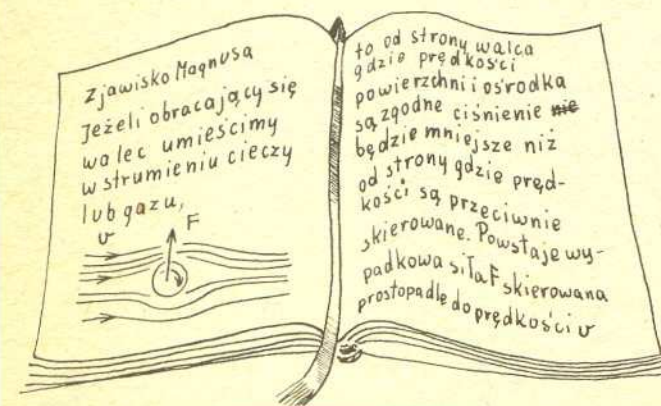 Zjawisko Magnusa
Jeżeli obracający się
walec umieścimy
w strumieniu cieczy
lub gazu,
v
F
to od strony walca
gdzie prędkości
powierzchni i ośrodka
są zgodne ciśnienie nie
będzie mniejsze niż
od strony gdzie pręd-
kości są przeciwnie
skierowane. Powstaje wy-
padkowa siła F skierowana
prostopadle do prędkości v